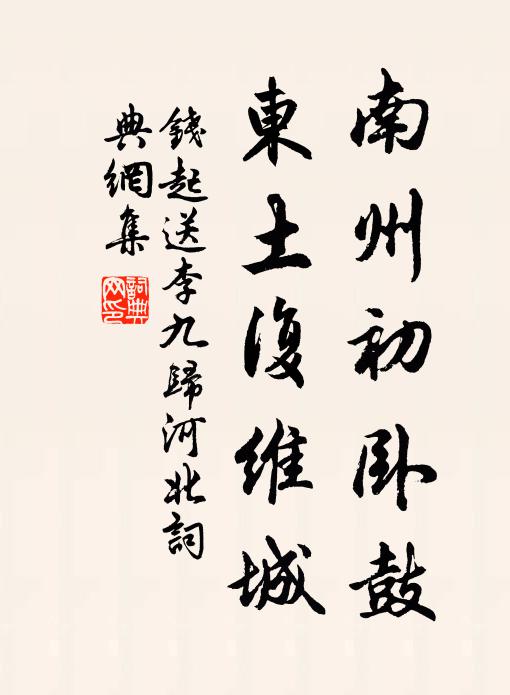 南州初卧鼓
東土復維城
錢起送李九歸河北詞
典網集
詞典网印